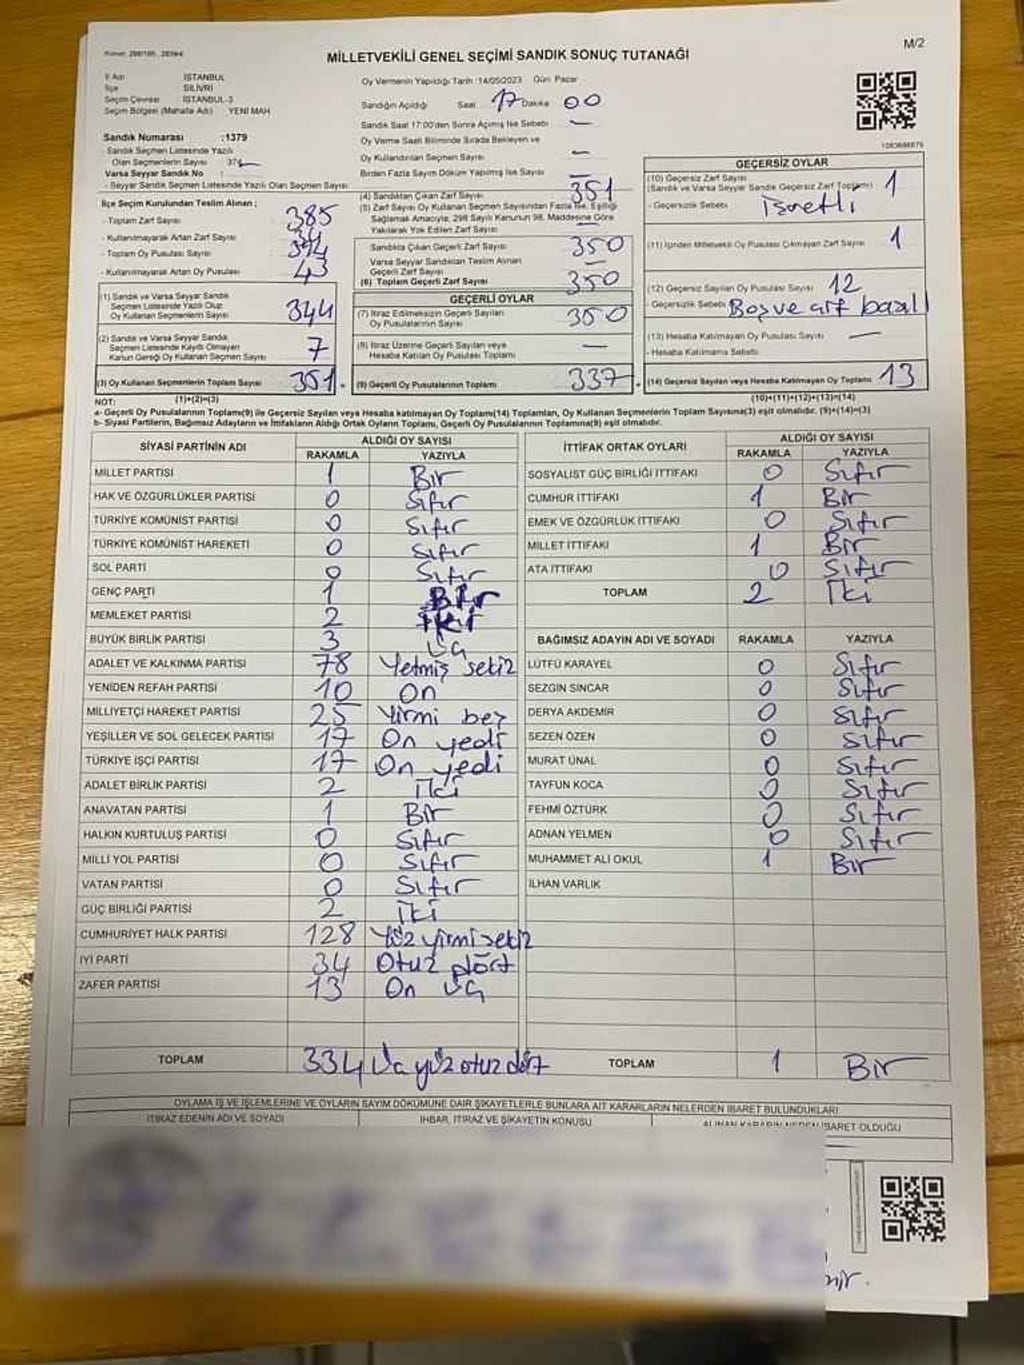 M/2
MİLLETVEKİLİ GENEL SEÇİMİ SANDIK SONUÇ TUTANAĞI
İl Adı : İSTANBUL
İlçe SİLİVRİ
Seçim Çevresi İSTANBUL-3
Seçim Bölgesi (Mahalle Adı) YENİ MAH
Sandık Numarası :1379
- Sandık Seçmen Listesinde Yazılı
Olan Seçmenlerin Sayısı
Varsa Seyyar Sandık No :
- Seyyar Sandık Seçmen Listesinde Yazılı Olan Seçmen Sayısı
Oy Vermenin Yapıldığı Tarih :14/05/2023 Gün: Pazar
Sandığın Açıldığı Saat 17 Dakika 00
Sandık Saat 17:00'den Sonra Açımış İse Sebebi —
Oy Verme Saati Bitiminde Sırada Bekleyen ve
Oy Kullandırılan Seçmen Sayısı —
Birden Fazla Sayım Döküm Yapılmış İse Sayısı —
İlçe Seçim Kurulundan Teslim Alınan ;
- Toplam Zarf Sayısı 385
- Kullanılmayarak Artan Zarf Sayısı
- Toplam Oy Pusulası Sayısı
- Kullanılmayarak Artan Oy Pusulası 43
(1) Sandık ve Varsa Seyyar Sandık
Seçmen Listesinde Yazılı Olup
Oy Kullanan Seçmenlerin Sayısı 344
(2) Sandık ve Varsa Seyyar Sandık
Seçmen Listesinde Kayıtlı Olmayan
Kanun Gereği Oy Kullanan Seçmen Sayısı 7
(3) Oy Kullanan Seçmenlerin Toplam Sayısı 351
(4) Sandıktan Çıkan Zarf Sayısı 351
(5) Zarf Sayısı Oy Kullanan Seçmen Sayısından Fazla İse, Eşitliği
Sağlamak Amacıyla, 298 Sayılı Kanunun 98. Maddesine Göre
Yakılarak Yok Edilen Zarf Sayısı
Sandıkta Çıkan Geçerli Zarf Sayısı 350
Varsa Seyyar Sandıktan Teslim Alınan
Geçerli Zarf Sayısı —
(6) Toplam Geçerli Zarf Sayısı 350
GEÇERLİ OYLAR
(7) İtiraz Edilmeksizin Geçerli Sayılan
Oy Pusulalarının Sayısı 350
(8) İtiraz Üzerine Geçerli Sayılan veya
Hesaba Katılan Oy Pusulası Toplamı —
(9) Geçerli Oy Pusulalarının Toplamı 337
GEÇERSİZ OYLAR
(10) Geçersiz Zarf Sayısı
(Sandık ve Varsa Seyyar Sandık Geçersiz Zarf Toplamı) 1
- Geçersizlik Sebebi : İşaretli
(11) İçinden Milletvekili Oy Pusulası Çıkmayan Zarf Sayısı 1
(12) Geçersiz Sayılan Oy Pusulası Sayısı 12
- Geçersizlik Sebebi Boş ve çift
(13) Hesaba Katılmayan Oy Pusulası Sayısı —
- Hesaba Katılmama Sebebi
(14) Geçersiz Sayılan veya Hesaba Katılmayan Oy Toplamı 13
NOT: (1)+(2)=(3) (10)+(11)+(12)+(13)=(14)
a- Geçerli Oy Pusulalarının Toplamı(9) ile Geçersiz Sayılan veya Hesaba katılmayan Oy Toplamı(14) Toplamları, Oy Kullanan Seçmenlerin Toplam Sayısına(3) eşit olmalıdır. (9)+(14)=(3)
b- Siyasi Partilerin, Bağımsız Adayların ve İttifakların Aldığı Ortak Oyların Toplamı, Geçerli Oy Pusulalarının Toplamına(9) eşit olmalıdır.
SİYASİ PARTİNİN ADI ALDIĞI OY SAYISI
RAKAMLA YAZIYLA
MİLLET PARTİSİ 1 Bir
HAK VE ÖZGÜRLÜKLER PARTİSİ 0 Sıfır
TÜRKİYE KOMÜNİST PARTİSİ 0 Sıfır
TÜRKİYE KOMÜNİST HAREKETİ 0 Sıfır
SOL PARTİ 0 Sıfır
GENÇ PARTİ 1 Bir
MEMLEKET PARTİSİ 2 İki
BÜYÜK BİRLİK PARTİSİ 3 Üç
ADALET VE KALKINMA PARTİSİ 78 Yetmiş sekiz
YENİDEN REFAH PARTİSİ 10 On
MİLLİYETÇİ HAREKET PARTİSİ 25 Yirmi beş
YEŞİLLER VE SOL GELECEK PARTİSİ 17 On yedi
TÜRKİYE İŞÇİ PARTİSİ 17 On yedi
ADALET BİRLİK PARTİSİ 2 İki
ANAVATAN PARTİSİ 1 Bir
HALKIN KURTULUŞ PARTİSİ 0 Sıfır
MİLLİ YOL PARTİSİ 0 Sıfır
VATAN PARTİSİ 0 Sıfır
GÜÇ BİRLİĞİ PARTİSİ 2 İki
CUMHURİYET HALK PARTİSİ 128 Yüz yirmi sekiz
İYİ PARTİ 34 Otuz dört
ZAFER PARTİSİ 13 On üç
TOPLAM 334 Üç yüz otuz dört
İTTİFAK ORTAK OYLARI ALDIĞI OY SAYISI
RAKAMLA YAZIYLA
SOSYALİST GÜÇ BİRLİĞİ İTTİFAKI 0 Sıfır
CUMHUR İTTİFAKI 1 Bir
EMEK VE ÖZGÜRLÜK İTTİFAKI 0 Sıfır
MİLLET İTTİFAKI 1 Bir
ATA İTTİFAKI 0 Sıfır
TOPLAM 2 İki
BAĞIMSIZ ADAYIN ADI VE SOYADI RAKAMLA YAZIYLA
LÜTFÜ KARAYEL 0 Sıfır
SEZGİN SİNCAR 0 Sıfır
DERYA AKDEMİR 0 Sıfır
SEZEN ÖZEN 0 Sıfır
MURAT ÜNAL 0 Sıfır
TAYFUN KOCA 0 Sıfır
FEHMİ ÖZTÜRK 0 Sıfır
ADNAN YELMEN 0 Sıfır
MUHAMMET ALİ OKUL 1 Bir
İLHAN VARLIK
TOPLAM 1 Bir
OYLAMA İŞ VE İŞLEMLERİNE VE OYLARIN SAYIM DÖKÜMÜNE DAİR ŞİKAYETLERLE BUNLARA AİT KARARLARIN NELERDEN İBARET BULUNDUKLARI
İTİRAZ EDENİN ADI VE SOYADI İHBAR, İTİRAZ VE ŞİKAYETİN KONUSU ALINAN KARARIN NEDEN İBARET OLDUĞU